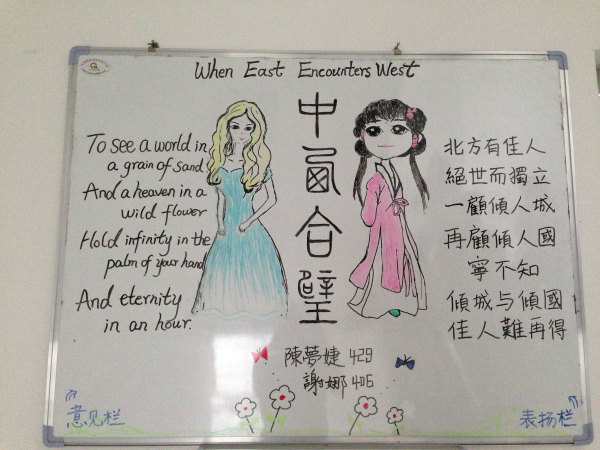 When East Encounters West
To see a world in
a grain of sand
And a heaven in a
wild flower
Hold infinity in the
palm of your hand
And eternity
in an hour.
中西合璧
北方有佳人
絕世而獨立
一顧傾人城
再顧傾人國
寧不知
傾城与傾國
佳人難再得
陳夢婕 429
謝娜 406
意见栏
表扬栏